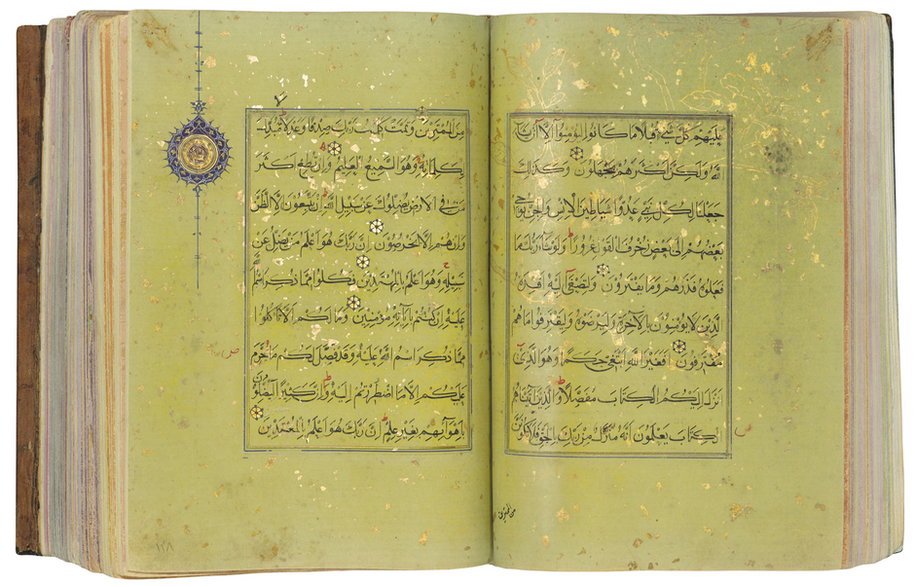 عليهم كل شيء قبلا ما كانوا ليؤمنوا إلا أن يشاء
الله ولكن أكثرهم يجهلون وكذلك
جعلنا لكل نبي عدوا شياطين الإنس والجن يوحي
بعضهم إلى بعض زخرف القول غرورا ولو شاء ربك ما
فعلوه فذرهم وما يفترون ولتصغى إليه أفئدة
الذين لا يؤمنون بالآخرة وليرضوه وليقترفوا ما هم
مقترفون أفغير الله أبتغي حكما وهو الذي
أنزل إليكم الكتاب مفصلا والذين آتيناهم
الكتاب يعلمون أنه منزل من ربك بالحق فلا تكونن
من الممترين
من الممترين وتمت كلمت ربك صدقا وعدلا لا مبدل
لكلماته وهو السميع العليم وإن تطع أكثر
من في الأرض يضلوك عن سبيل الله إن يتبعون إلا الظن
وإن هم إلا يخرصون إن ربك هو أعلم من يضل عن
سبيله وهو أعلم بالمهتدين فكلوا مما ذكر اسم الله
عليه إن كنتم بآياته مؤمنين وما لكم ألا تأكلوا
مما ذكر اسم الله عليه وقد فصل لكم ما حرم
عليكم إلا ما اضطررتم إليه وإن كثيرا ليضلون
بأهوائهم بغير علم إن ربك هو أعلم بالمعتدين
١٢٨